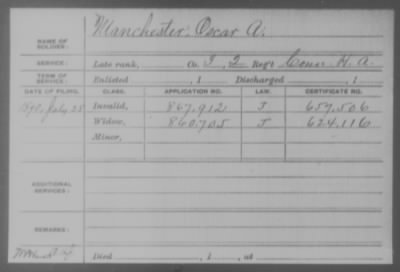 NAME OF SOLDIER: Manchester, Oscar A.
SERVICE: Late rank, Co. I, 2 Reg't Conn. H. A.
TERM OF SERVICE: Enlisted , 1 Discharged , 1
DATE OF FILING. CLASS. APPLICATION NO. LAW. CERTIFICATE NO.
July 25 Invalid, 867.912 J 657.506
Widow, 860.705 J 624.116
Minor,
ADDITIONAL SERVICES:
REMARKS:
Died , 1 , at